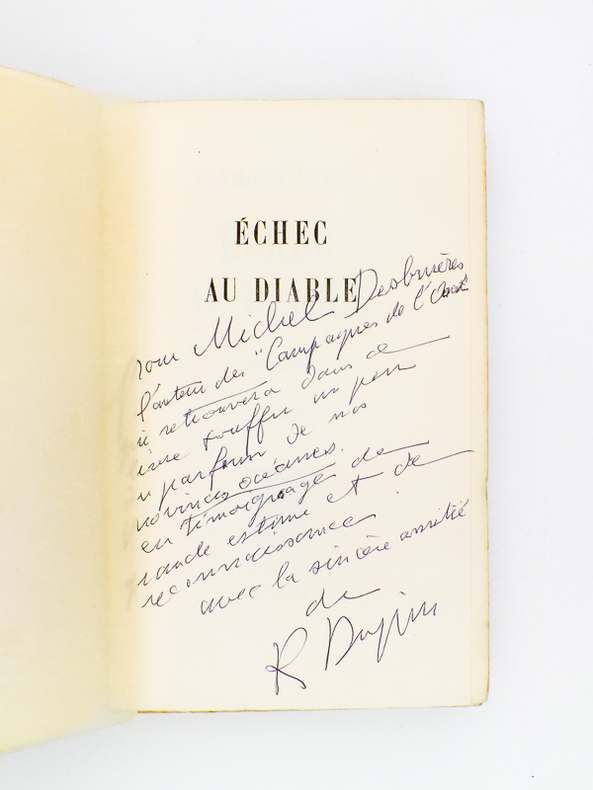 ÉCHEC
AU DIABLE
pour Michel Desbruères
l'auteur des "Campagnes de l'Ouest"
qui retrouvera dans ce
livre touffu un peu
du parfum de nos
provinces océanes.
en témoignage de
grande estime et de
reconnaissance
avec la sincère amitié
de
R